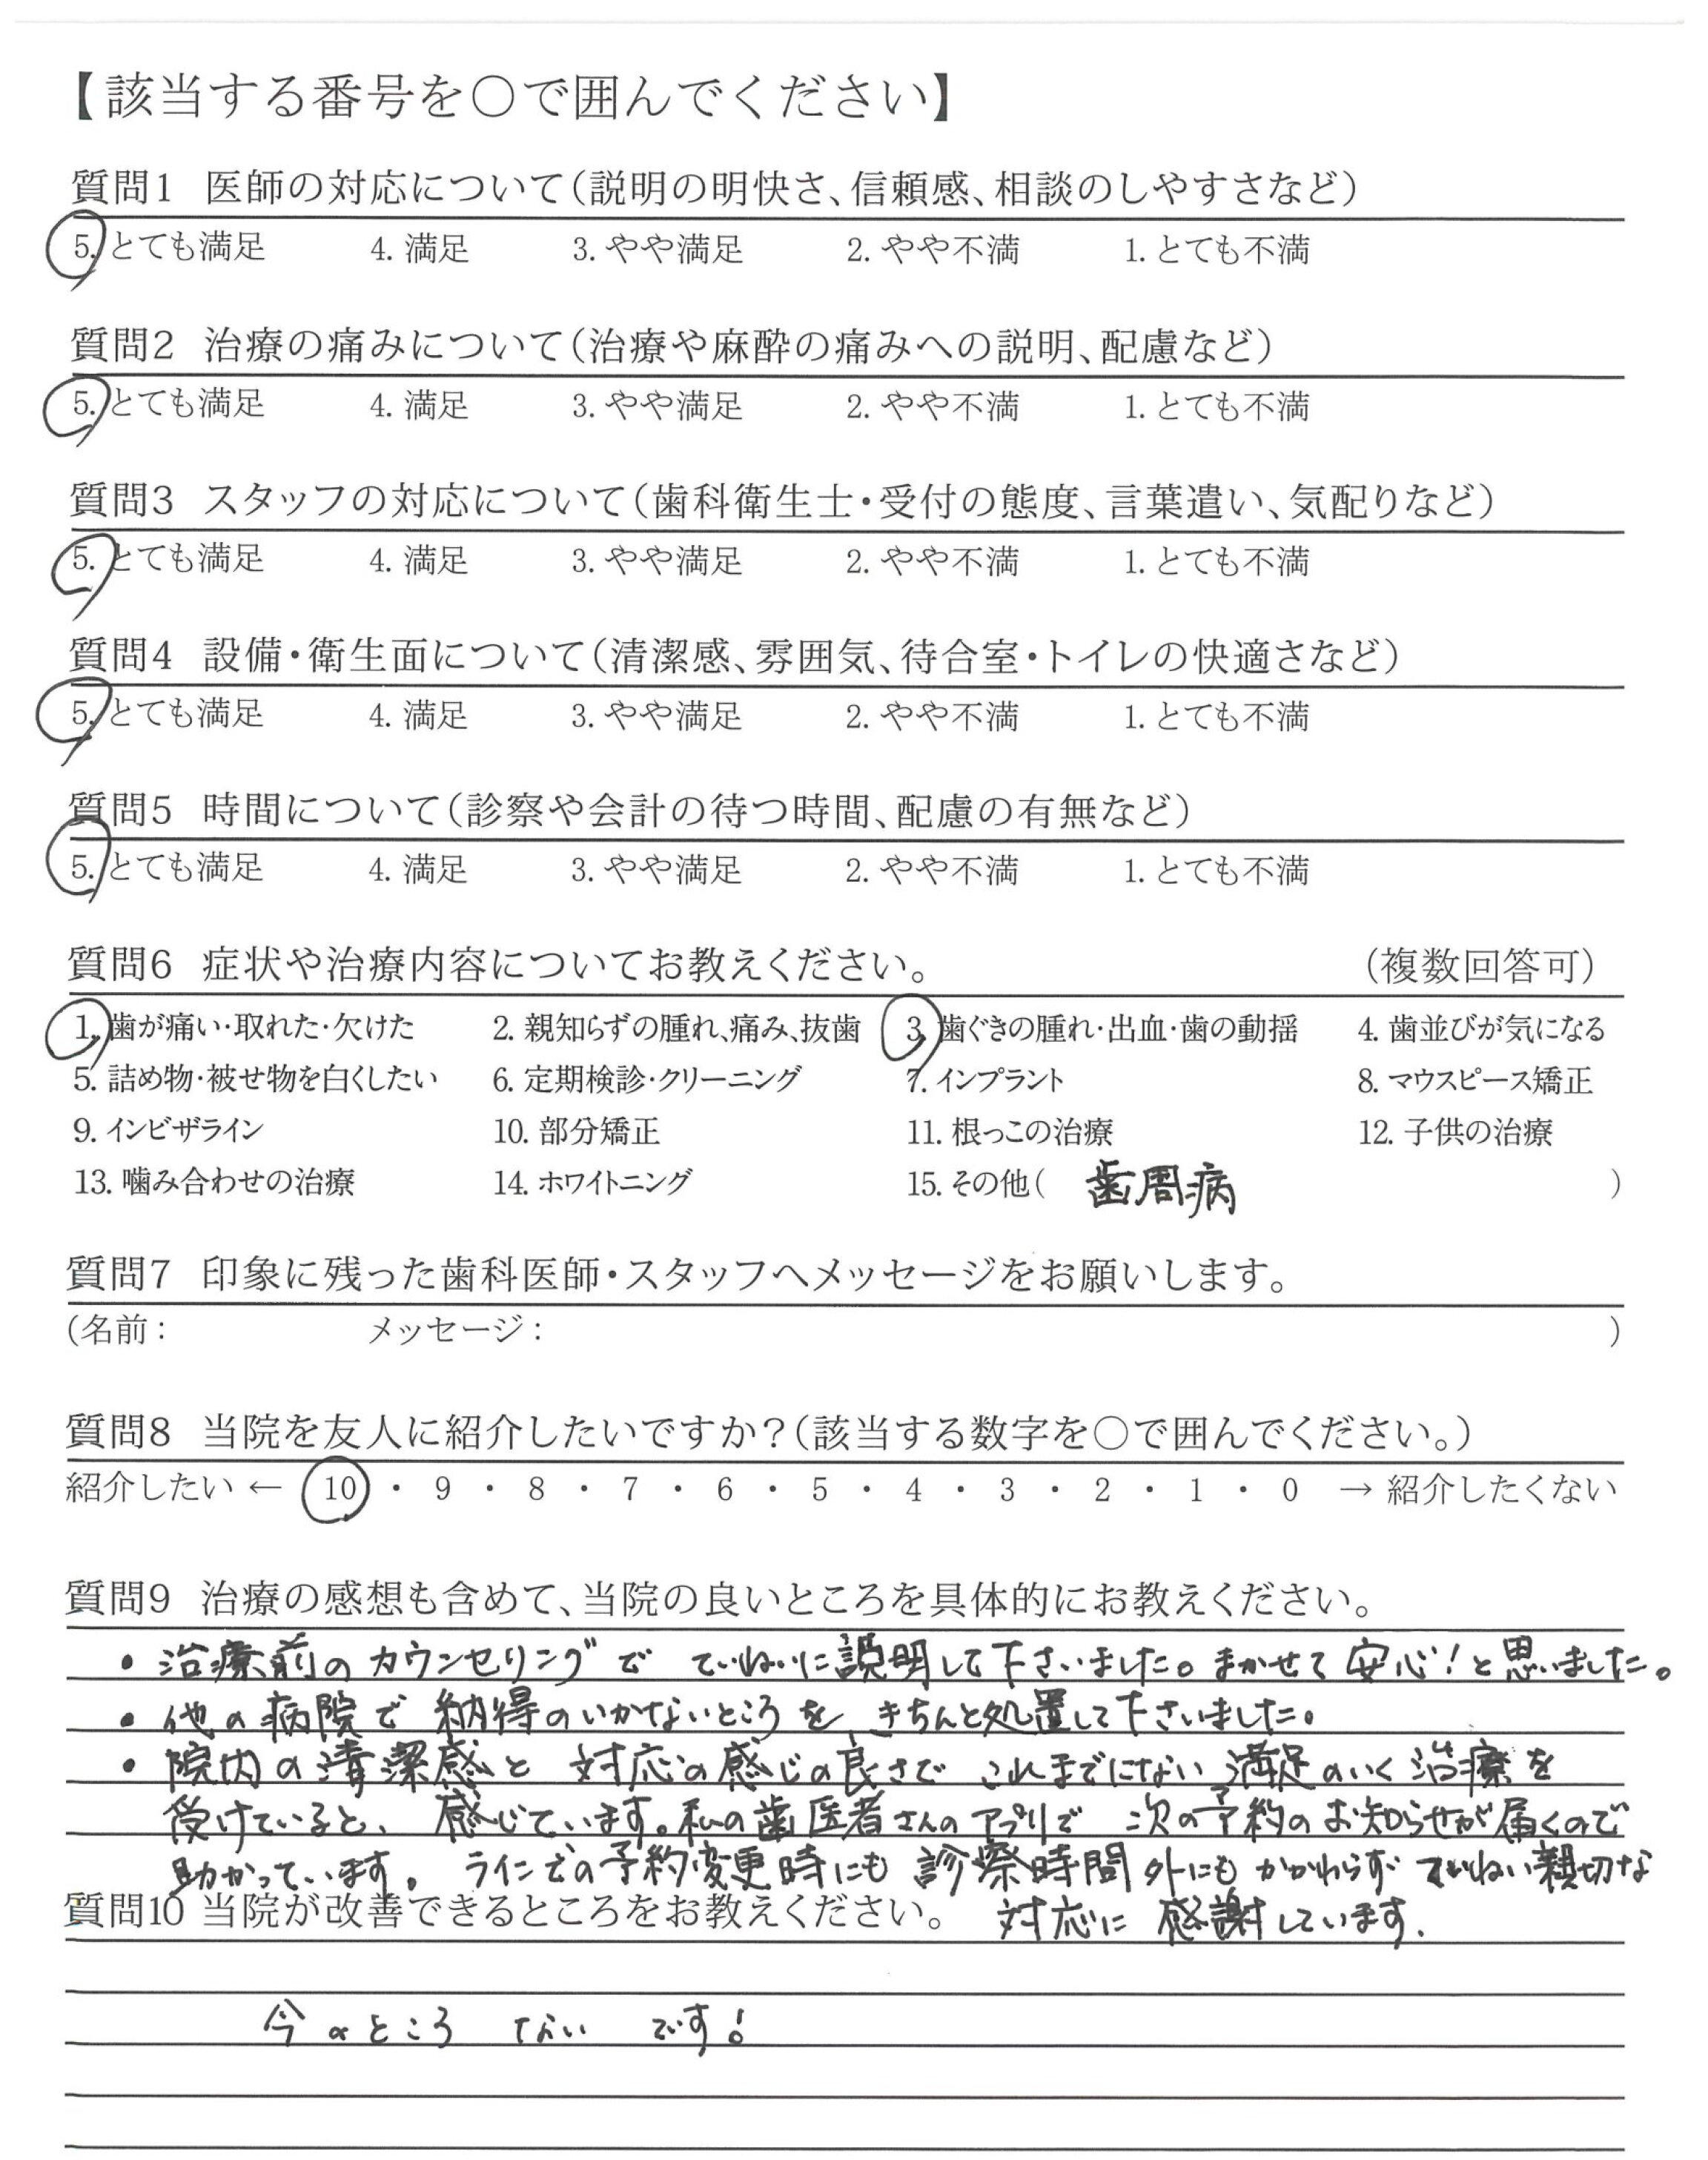 【該当する番号を〇で囲んでください】
質問1 医師の対応について(説明の明快さ、信頼感、相談のしやすさなど)
5. とても満足 4. 満足 3. やや満足 2. やや不満 1. とても不満
質問2 治療の痛みについて(治療や麻酔の痛みへの説明、配慮など)
5. とても満足 4. 満足 3. やや満足 2. やや不満 1. とても不満
質問3 スタッフの対応について(歯科衛生士・受付の態度、言葉遣い、気配りなど)
5. とても満足 4. 満足 3. やや満足 2. やや不満 1. とても不満
質問4 設備・衛生面について(清潔感、雰囲気、待合室・トイレの快適さなど)
5. とても満足 4. 満足 3. やや満足 2. やや不満 1. とても不満
質問5 時間について(診察や会計の待つ時間、配慮の有無など)
5. とても満足 4. 満足 3. やや満足 2. やや不満 1. とても不満
質問6 症状や治療内容についてお教えください。 (複数回答可)
1. 歯が痛い・取れた・欠けた 2. 親知らずの腫れ、痛み、抜歯 3. 歯ぐきの腫れ・出血・歯の動揺 4. 歯並びが気になる
5. 詰め物・被せ物を白くしたい 6. 定期検診・クリーニング 7. インプラント 8. マウスピース矯正
9. インビザライン 10. 部分矯正 11. 根っこの治療 12. 子供の治療
13. 噛み合わせの治療 14. ホワイトニング 15. その他( 歯周病 )
質問7 印象に残った歯科医師・スタッフへメッセージをお願いします。
(名前: メッセージ: )
質問8 当院を友人に紹介したいですか?(該当する数字を〇で囲んでください。)
紹介したい ← 10 ・ 9 ・ 8 ・ 7 ・ 6 ・ 5 ・ 4 ・ 3 ・ 2 ・ 1 ・ 0 → 紹介したくない
質問9 治療の感想も含めて、当院の良いところを具体的にお教えください。
・治療前のカウンセリングで ていねいに説明して下さいました。まかせて安心!と思いました。
・他の病院で納得のいかないところを、きちんと処置して下さいました。
・院内の清潔感と 対応の感じの良さで これまでにない満足のいく治療を
受けていると、感じています。私の歯医者さんのアプリで 次の予約のお知らせが届くので
助かっています。ラインでの予約変更時にも診察時間外にもかかわらず ていねい親切な
質問10 当院が改善できるところをお教えください。 対応に感謝しています.
今のところ ない です!